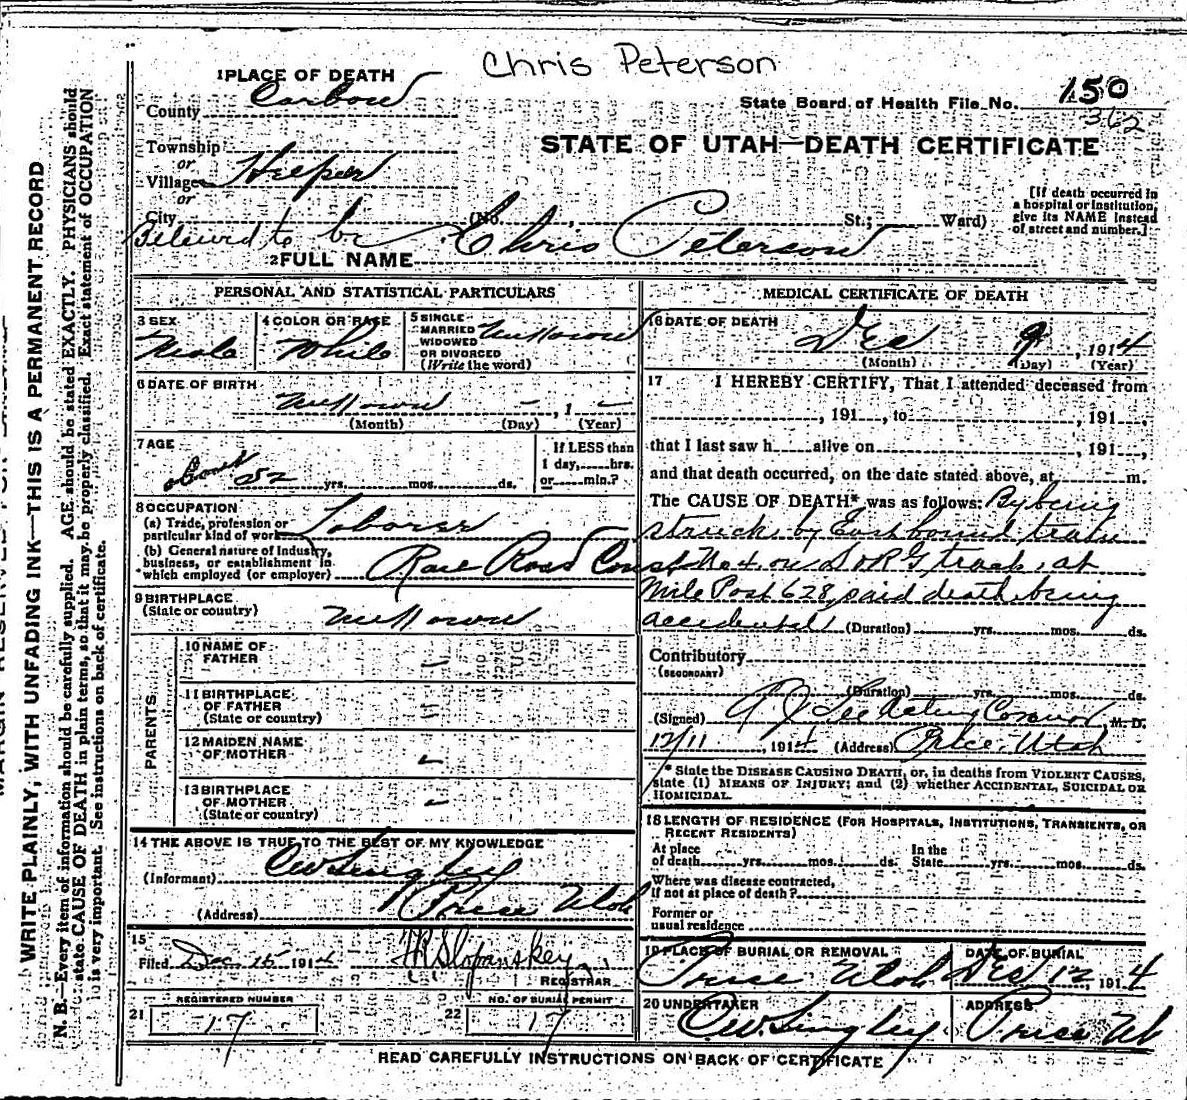 Chris Peterson
1 PLACE OF DEATH
County Carbon
State Board of Health File No. 150
362
STATE OF UTAH—DEATH CERTIFICATE
Township
or
Village Helper
or
City (No. , St.; Ward)
[If death occurred in
a hospital or institution,
give its NAME instead
of street and number.]
Believed to be Chris Peterson
2 FULL NAME
PERSONAL AND STATISTICAL PARTICULARS
3 SEX
Male
4 COLOR OR RACE
White
5 SINGLE
MARRIED
WIDOWED
OR DIVORCED
(Write the word)
Unknown
6 DATE OF BIRTH
Unknown – , 1 –
(Month) (Day) (Year)
7 AGE
about 52 yrs. mos. ds.
If LESS than
1 day, hrs.
or min.?
8 OCCUPATION
(a) Trade, profession or
particular kind of work Laborer
(b) General nature of Industry,
business, or establishment in
which employed (or employer) Rail Road Const
9 BIRTHPLACE
(State or country) Unknown
PARENTS
10 NAME OF
FATHER –
11 BIRTHPLACE
OF FATHER
(State or country)
12 MAIDEN NAME
OF MOTHER –
13 BIRTHPLACE
OF MOTHER –
(State or country)
14 THE ABOVE IS TRUE TO THE BEST OF MY KNOWLEDGE
(Informant) C W Singley
(Address) Price Utah
15
Filed Dec 15 1914
REGISTRAR
REGISTERED NUMBER
21 17
NO. OF BURIAL PERMIT
22 17
MEDICAL CERTIFICATE OF DEATH
16 DATE OF DEATH
Dec 9, 1914
(Month) (Day) (Year)
17 I HEREBY CERTIFY, That I attended deceased from
, 191 , to , 191 ,
that I last saw h alive on , 191 ,
and that death occurred, on the date stated above, at m.
The CAUSE OF DEATH* was as follows: By being
struck by Eastbound train
No 4 on D & R G track, at
Mile Post 628, said death being
accidental (Duration) yrs. mos. ds.
Contributory
(SECONDARY)
(Duration) yrs. mos. ds.
(Signed) Lee Acting Coronor, M. D.
12/11, 1914 (Address) Price, Utah
* State the DISEASE CAUSING DEATH, or, in deaths from VIOLENT CAUSES,
state (1) MEANS OF INJURY; and (2) whether ACCIDENTAL, SUICIDAL OR
HOMICIDAL.
18 LENGTH OF RESIDENCE (FOR HOSPITALS, INSTITUTIONS, TRANSIENTS, OR
RECENT RESIDENTS)
At place
of death yrs. mos. ds.
In the
State yrs. mos. ds.
Where was disease contracted,
if not at place of death?
Former or
usual residence
19 PLACE OF BURIAL OR REMOVAL
Price Utah
DATE OF BURIAL
Dec 12, 1914
20 UNDERTAKER
C W Singley
ADDRESS
Price Ut
READ CAREFULLY INSTRUCTIONS ON BACK OF CERTIFICATE
WRITE PLAINLY, WITH UNFADING INK—THIS IS A PERMANENT RECORD
N. B.—Every item of information should be carefully supplied. AGE should be stated EXACTLY. PHYSICIANS should
state CAUSE OF DEATH in plain terms, so that it may be properly classified. Exact statement of OCCUPATION
is very important. See instructions on back of certificate.